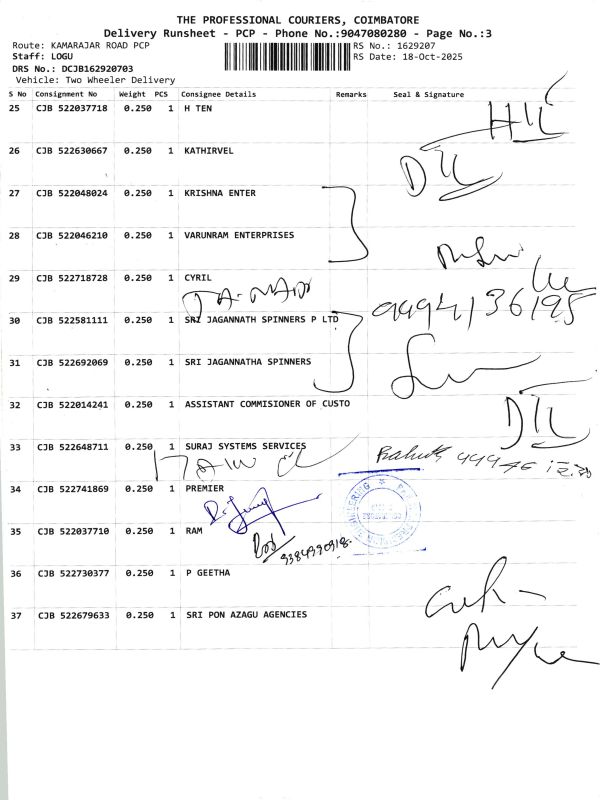 THE PROFESSIONAL COURIERS, COIMBATORE
Delivery Runsheet - PCP - Phone No.:9047080280 - Page No.:3
Route: KAMARAJAR ROAD PCP
RS No.: 1629207
Staff: LOGU
RS Date: 18-Oct-2025
DRS No.: DCJB162920703
Vehicle: Two Wheeler Delivery
S No Consignment No Weight PCS Consignee Details Remarks Seal & Signature
25 CJB 522037718 0.250 1 H TEN
26 CJB 522630667 0.250 1 KATHIRVEL
27 CJB 522048024 0.250 1 KRISHNA ENTER
28 CJB 522046210 0.250 1 VARUNRAM ENTERPRISES
29 CJB 522718728 0.250 1 CYRIL
9994136195
30 CJB 522581111 0.250 1 SRI JAGANNATH SPINNERS P LTD
31 CJB 522692069 0.250 1 SRI JAGANNATHA SPINNERS
32 CJB 522014241 0.250 1 ASSISTANT COMMISIONER OF CUSTO
33 CJB 522648711 0.250 1 SURAJ SYSTEMS SERVICES
34 CJB 522741869 0.250 1 PREMIER
35 CJB 522037710 0.250 1 RAM
36 CJB 522730377 0.250 1 P GEETHA
37 CJB 522679633 0.250 1 SRI PON AZAGU AGENCIES